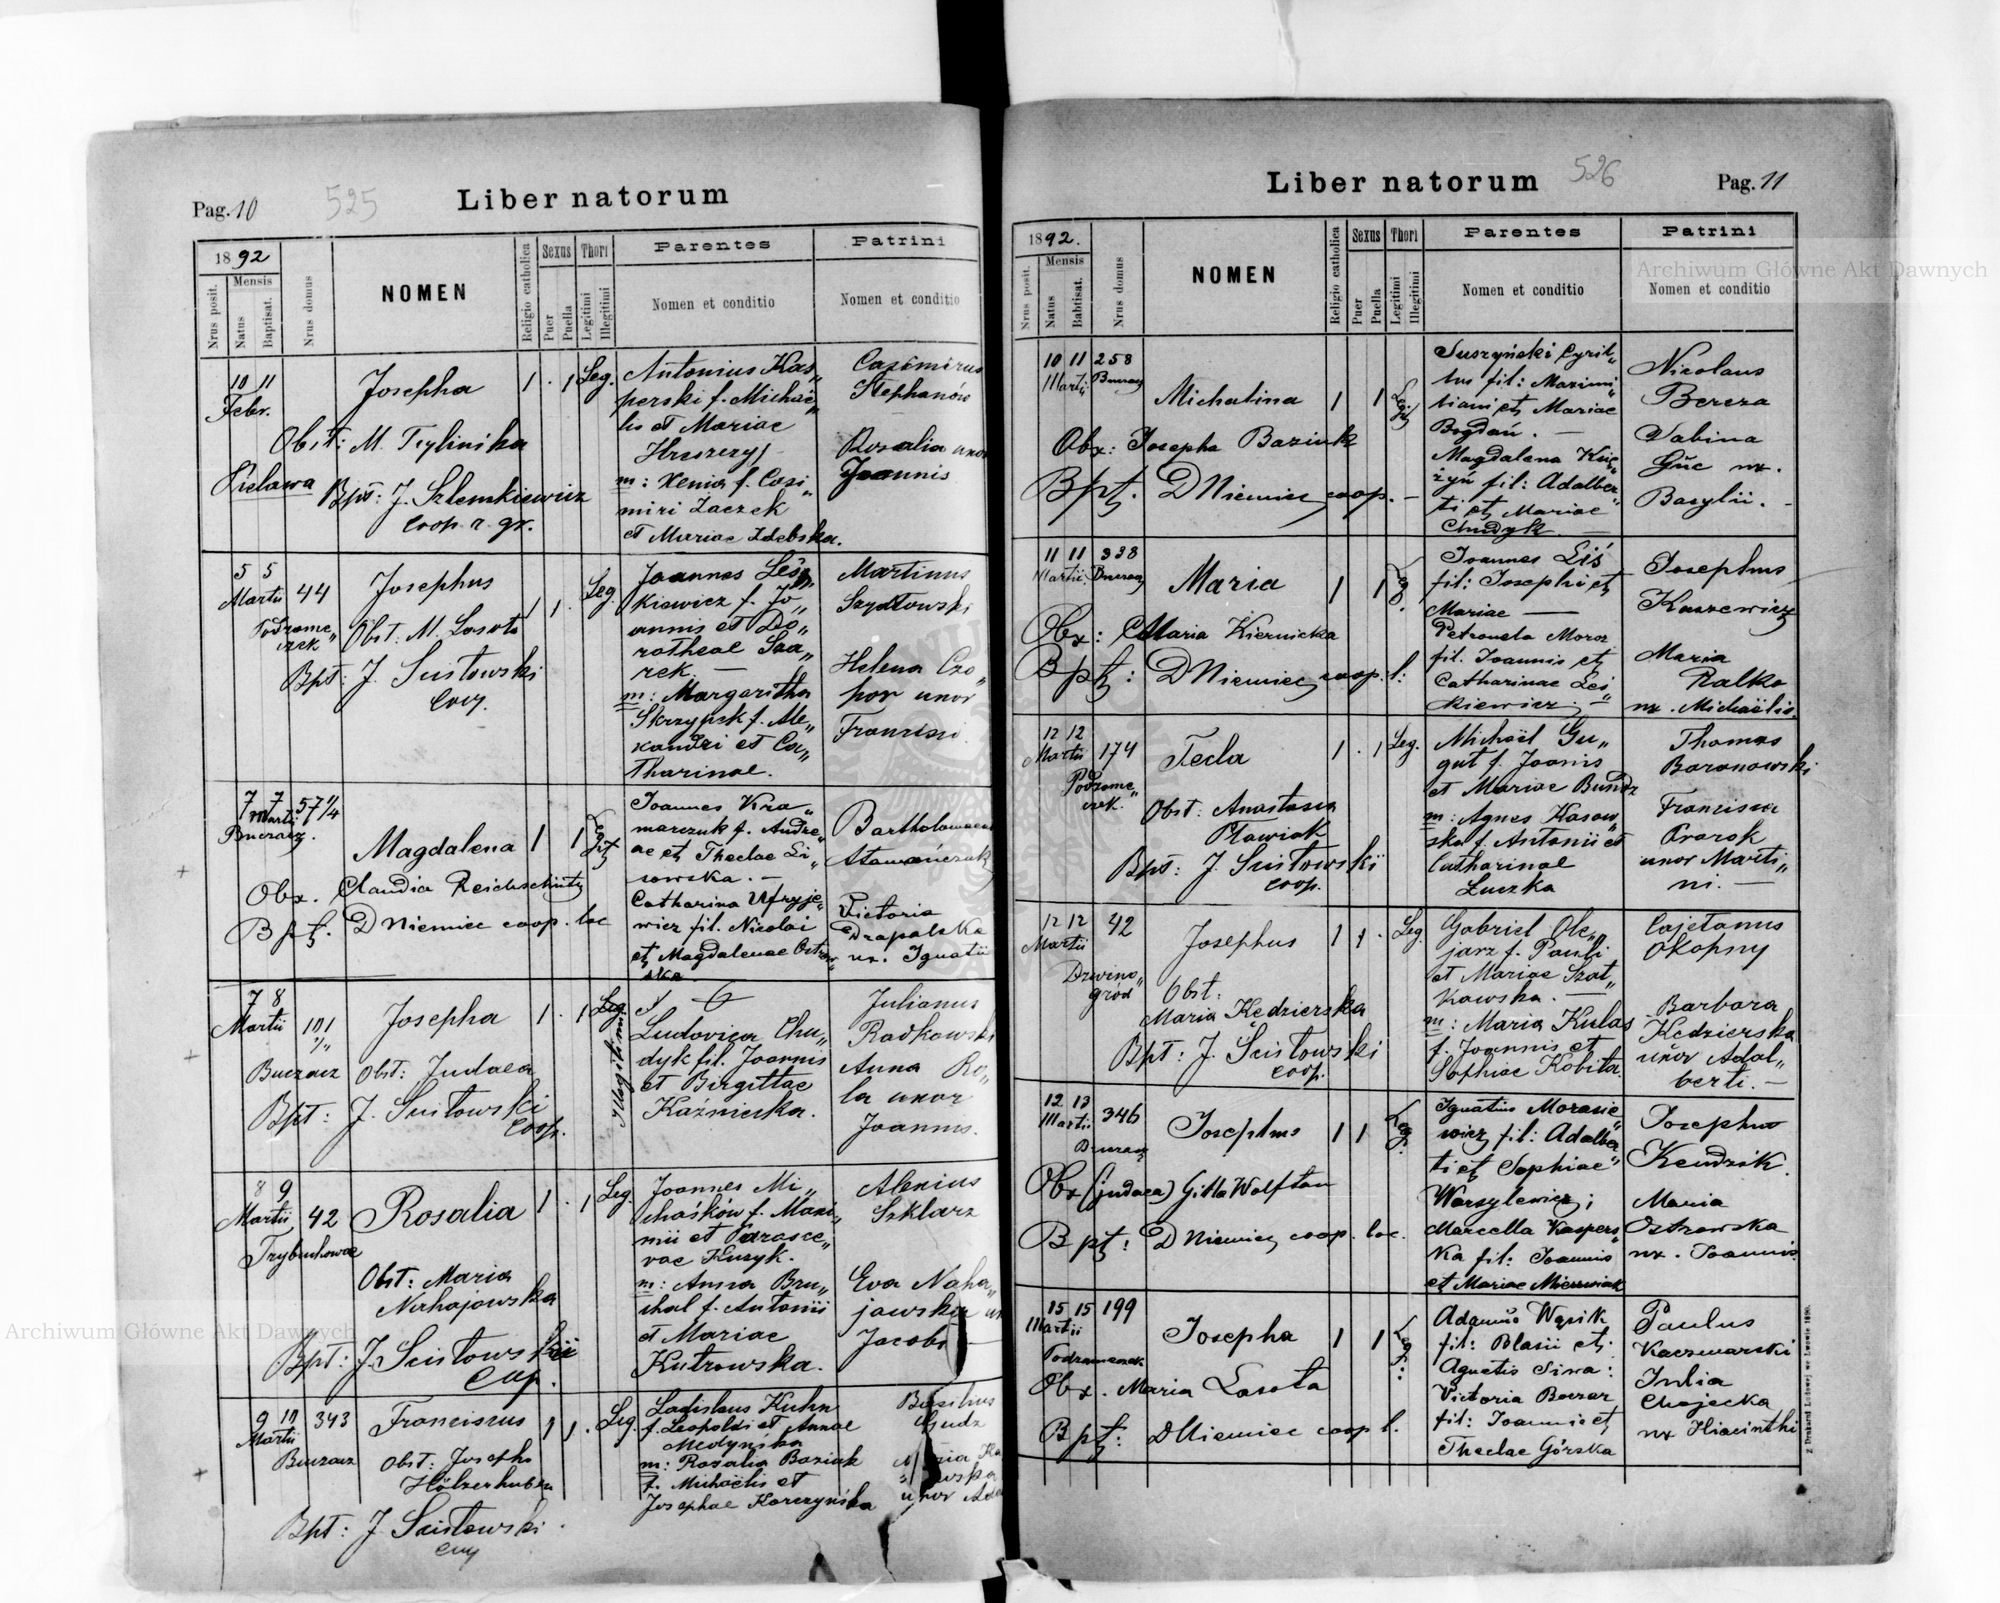 Pag. 10
525
Liber natorum
1892
Mensis
Nrus posit.
Natus
Baptisat.
Nrus domus
NOMEN
Religio catholica
Sexus
Puer
Puella
Thori
Legitimi
Illegitimi
Parentes
Nomen et conditio
Patrini
Nomen et conditio
10 11
Febr.
Josepha
1 . 1 Leg.
Obst: M. Trylinska
Pielawa
Bpt: J. Szlemkiewicz
coop. r. gr.
Antonius Kas„
perski f. Michae„
lis et Mariae
m: Xenia f. Casi„
miri Zaczek
et Mariae Zdebska.
Casimirus
Stephanów
Rosalia uxor
Joannis
5 5
Martii 44
Podzame„
czek
Josephus
1 1 . Leg.
Obst: M. Lasota
Bpt: J. Scisłowski
coop.
Joannes Leś„
kiewicz f. Jo„
annis et Do„
rotheae Saa„
rek. —
m: Margaritha
Skrzypek f. Ale„
xandri et Ca„
tharinae.
Martinus
Szydłowski
Helena Czo„
por uxor
Francisci.
7 7 57 1/4
Martii
Buczacz.
Magdalena 1 1 Legit
Obx. Claudia Reichschütz
Bpt. D Niemiec coop. loc
Joannes Kra„
marczuk f. Andre„
ae et Theclae Li„
sowska. —
Catharina Ufryje„
wicz fil. Nicolai
et Magdalenae Ostrow„
ska
Bartholomaeus
Atamańczuk
Victoria
Drapalska
ux. Ignatii
7 8
Martii 101
Buczacz
Josepha
1 . 1 Leg.
Illegitimi
Obst: Judaea
Bpt: J. Scisłowski
coop.
Ludovica Chu„
dyk fil. Joannis
et Birgittae
Kaźnicka.
Julianus
Radkowski
Anna Ro„
la uxor
Joannis.
8 9
Martii 42
Trybuchowce
Rosalia 1 . 1 Leg.
Obst: Maria
Nahajowska
Bpt: J. Scisłowski
coop.
Joannes Mi„
chaśków f. Maxi„
mii et Parasce„
vae Kuzyk.
m: Anna Bru„
chal f. Antonii
et Mariae
Kutrowska.
Alexius
Szklarz
Eva Naha„
jowska
Jacobi
9 10 343
Martii
Buczacz
Franciscus 1 1 . Leg.
Obst: Josepha
Hölzerhuber
Bpt: J. Scisłowski.
Ladislaus Kuhn
f. Leopoldi et Annae
Medynska
m: Rosalia Baziuk
f. Michaëlis et
Josephae Korczyńska
Basilius
Gudz
uxor
Liber natorum
526
Pag. 11
1892.
Mensis
Nrus posit.
Natus
Babtisat.
Nrus domus
NOMEN
Religio catholica
Sexus
Puer
Puella
Thori
Legitimi
Illegitimi
Parentes
Nomen et conditio
Patrini
Nomen et conditio
10 11 258
Martii Buczacz
Michalina 1 1 Legit
Obx: Josepha Baziuk
Bpt. D Niemiec coop. —
Suszyński Cyril„
lus fil: Maximi„
liani et Mariae
Bogdań. —
Magdalena Księ„
żyń fil: Adalber„
ti et Mariae
Chudyk —
Nicolaus
Bereza
Sabina
Guc ux.
Basylii. -
11 11 338
Martii Buczacz
Maria 1 1 Leg.
Obx: Maria Kiernicka
Bpt: D Niemiec coop. l:
Joannes Liś
fil: Josephi et
Mariae —
Petronela Moroz
fil. Joannis et
Catharinae Leś
kiewicz. —
Josephus
Kuszewicz
Maria
Ralko
ux. Michaëlis.
12 12
Martii 174
Podzame„
czek.
Tecla 1 . 1 Leg.
Obst: Anastasia
Pławiak
Bpt: J. Scisłowski
coop.
Michaël Gu„
gut f. Joannis
et Mariae Bundz
m: Agnes Kasow„
ska f. Antonii et
Catharinae
Łuczka
Thomas
Baranowski
Francisca
Kozak
uxor Marti„
ni. —
12 12 42
Martii
Dzwino„
gród
Josephus 1 1 . Leg.
Obst:
Maria Kędzierska
Bpt: J. Scisłowski
coop.
Gabriel Ole„
jarz f. Pauli
et Mariae Szat„
kowska. —
m: Maria Kulas
f. Joannis et
Sophiae Kobita.
Cajetanus
Okopny
Barbara
Kędzierska
uxor Adal„
berti. —
12 13 346
Martii
Buczacz
Josephus 1 1 Leg.
Obx (judaea) Gitla Wolftan
Bpt: D Niemiec coop. loc.
Ignatius Morasie„
wicz fil: Adalber„
ti et Sophiae
Warsylewicz;
Marcella Kaspers„
ka fil: Joannis
et Mariae Mierzwiak
Josephus
Kendzik.
Maria
Ostrowska
ux. Joannis.
15 15 199
Martii
Podzameczek
Josepha 1 1 Leg.:
Obx. Maria Lasota
Bpt: D Niemiec coop l.
Adamus Wąsik
fil: Blasii et
Agnetis Siwa:
Victoria Boczar
fil: Joannis et
Theclae Górska
Paulus
Kaczmarski
Julia
Chojecka
ux Hiacinthi
Z Drukarni Ludowej we Lwowie 1890.
Archiwum Główne Akt Dawnych
Archiwum Główne Akt Dawnych